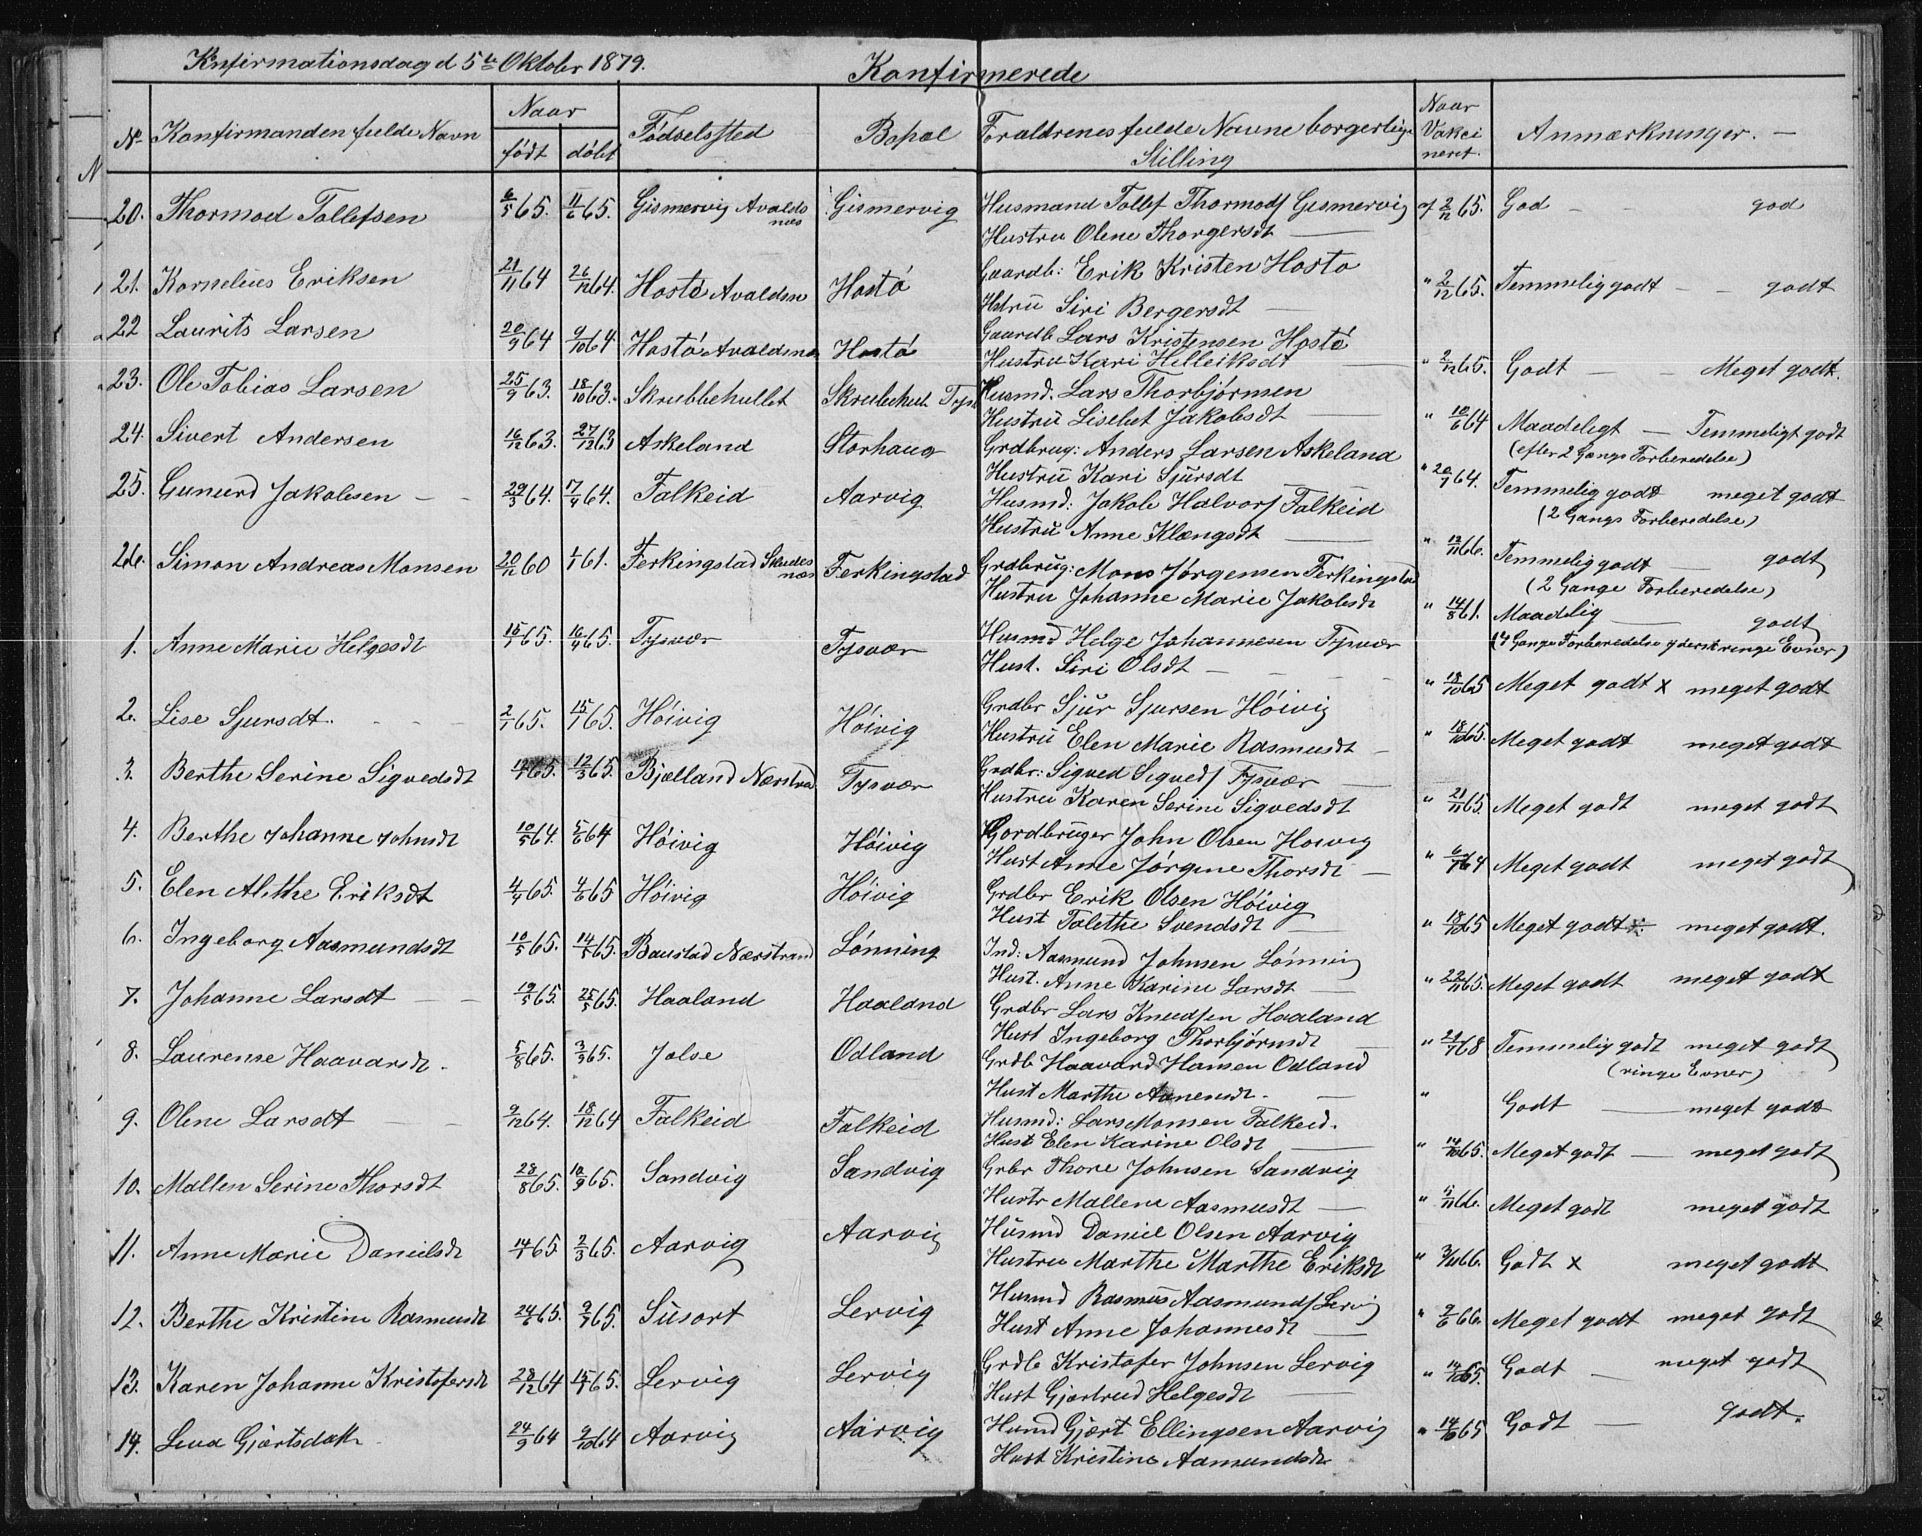 Knfirmationsdag d 5te Oktober 1879.
Konfirmerede
No Konfirmanden fulde Navn Naar født døbt Fødselssted Bopæl Foraldrenes fulde Navne borgerlige Stilling Naar Vakcineret. Anmærkninger. —
20. Thormod Tollefsen 6/5 65. 11/6 65. Gismervig Avaldsnæs Gismervig Husmand Tollef Thormods Gismervig af 2/12 65. God — god
Hustru Olene Thorgersdt —
21. Kornelius Eriksen 21/11 64 26/12 64. Hostø Avaldsn Hostø Gaardb: Erik Kristen Hosto " 2/12 65. Temmelig godt — — godt
Hstru Siri Bergersdt —
22 Laurits Larsen 20/9 64 9/10 64. Hostø Avaldsnæs Hostø Gaardb Lars Kristensen Hostø
Hustru Kari Helleiksdt — " 2/12 65. Godt — — Meget godt.
23. Ole Tobias Larsen 25/9 63. 18/10 63. Skrubbehullet Skrubehul. Tysv Husmd. Lars Thorbjørnsen
Hustru Lisebet Jakobsdt — " 10/6 64 Maadeligt — Temmeligt godt
(efter 2 Gangs Forberedelse)
24. Sivert Andersen 16/12 63. 27/12 63 Askeland Storhaug Grdbrug: Anders Larsen Askeland
Hustru Kari Sjursdt — " 20/1 64. Temmelig godt meget godt
(2 Gangs Forberedelse)
25. Gunuerd Jakobsen — — 29/3 64. 17/4 64. Falkeid Aarvig Husmd: Jakob Halvors Falkeid
Hustru Anne Klængsdt — " 12/11 66. Temmelig godt — godt
(2 Gange Forberedelse)
26. Simon Andreas Monsen 20/12 60 1/1 61. Ferkingstad Skudesnæs Ferkingstad Grdbrug: Mons Jørgensen Ferkingstad
Hustru Johanne Marie Jakobsdt " 14/8 61. Maadelig — godt
(4 Gange Forberedelse yderst ringe Evner)
1. Anne Marie Helgesdt 15/1 65. 16/4 65. Tysvær Tysvær Husmd Helge Johannesen Tysvær
Hust. Siri Olsdt — " 18/10 65 Meget godt x meget godt
2. Lise Sjursdt. 2/1 65. 15/1 65. Høivig Høivig Grdbr Sjur Sjursen Høivig
Hustru Elen Marie Rasmusdt — " 18/10 65. Meget godt meget godt
3. Berthe Serine Sigvedsdt 12/1 65. 12/3 65. Bjelland Nærstrad Tysvær Grdbr: Sigved Sigveds Tysvær —
Hustru Karen Serine Sigvedsdt " 21/11 65 Meget godt meget godt
4. Berthe Johanne Johnsdt 10/5 64. 5/6 64 Høivig Høivig Gordbruger John Olsen Hoivig
Hust Anne Jørgine Thorsdt — " 6/7 64 Meget godt meget godt
5. Elen Alithe Eriksdt 4/4 65 4/6 65 Høivig Høivig Grdbr Erik Olsen Høivig
Hust Talethe Svendsdt — " 18/10 65 Meget godt meget godt.
6. Ingeborg Aasmundsdt 10/5 65. 14/5 65. Baustad Nærstrand Lønning Ind: Aasmund Johnsen Lønning
Hust. Anne Karine Larsdt — " 22/11 65. Meget godt meget godt
7. Johanne Larsdt — — 19/5 65. 25/5 65. Haaland Haaland Grdbr Lars Knudsen Haaland
Hust Ingeborg Thorbjørnsdt " 21/7 68 Temmelig godt meget godt
(ringe Evner)
8. Laurense Haavarsdt. 5/8 65. 3/9 65. Jalse Odland Grdb Haavard Hansen Odland
Hust Marthe Aanensdt. — " Godt — meget godt
9. Olene Larsdt — — 9/12 64. 18/12 64 Falkeid Falkeid Husmd: Lars Monsen Falkeid.
Hust Elen Karine Olsdt — " 14/10 65. Meget godt — meget godt
10. Mallen Serine Thorsdt 28/8 65. 10/9 65. Sandvig Sandvig Grbr Thore Johnsen Sandvig
Hustr Mallene Aasmusdt — " 5/11 66. Meget godt meget godt
11. Anne Marie Danielsdt 14/1 65. 2/3 65. Aarvig Aarvig Husmd Daniel Olsen Aarvig
Hustru Marthe Marthe Eriksdt " 3/11 66. Godt x meget godt
12. Berthe Kristine Rasmusdt 24/6 65. 9/7 65. Susort Lervig Husmd Rasmus Aasmunds Lervig
Hust Anne Johannesdt — " 9/6 66. Meget godt meget godt
13. Karen Johanne Kristofersdt 28/12 64 15/1 65. Lervig Lervig Grdb Kristofer Johnsen Lervig
Hust Gjertrud Helgesdt — " 14/10 65. Godt — meget godt
14. Lena Gjærtsdatt 24/9 64 9/10 64 Aarvig Aarvig Husmd Gjært Ellingsen Aarvig " 14/10 65 Godt — godt.
Hust Kristine Aamundsdt